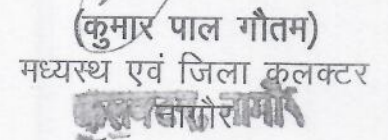 (कुमार पाल गौतम)
मध्यस्थ एवं जिला कलक्टर
नागौर